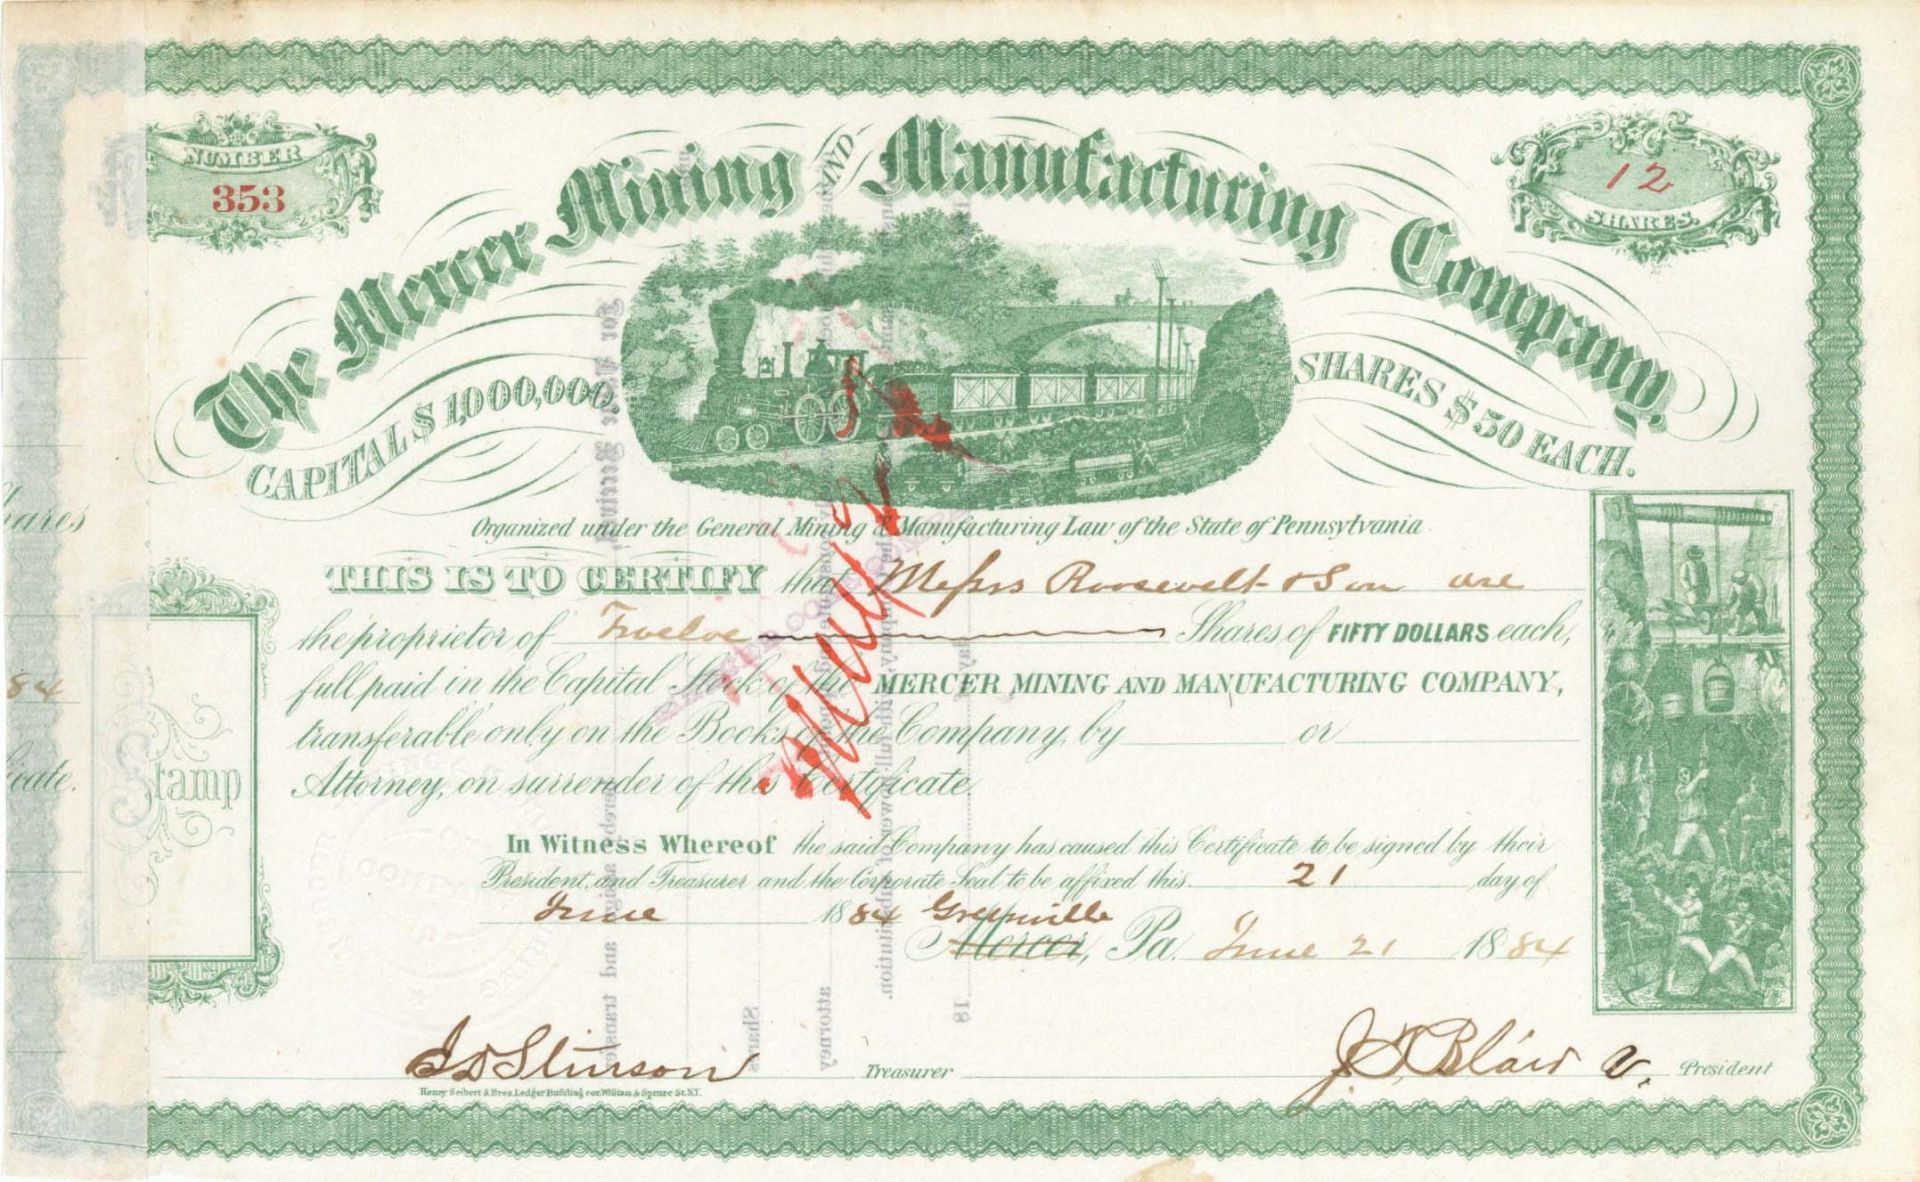 NUMBER
353
12
SHARES.
The Mercer Mining AND Manufacturing Company.
CAPITAL $ 1,000,000
SHARES $ 50 EACH.
Organized under the General Mining & Manufacturing Law of the State of Pennsylvania
THIS IS TO CERTIFY that Messrs Roosevelt & Son are
the proprietor of Twelve Shares of FIFTY DOLLARS each,
full paid in the Capital Stock of the MERCER MINING AND MANUFACTURING COMPANY,
transferable only on the Books of the Company, by or
Attorney, on surrender of this Certificate.
In Witness Whereof the said Company has caused this Certificate to be signed by their
President, and Treasurer and the Corporate Seal to be affixed this 21 day of
June 1884 Greenville
Mercer, Pa. June 21 1884
Stamp
hares
84
icate.
J. T. Blair V. President
Treasurer
Henry Seibert & Bros. Ledger Building cor. William & Spruce St. N.Y.